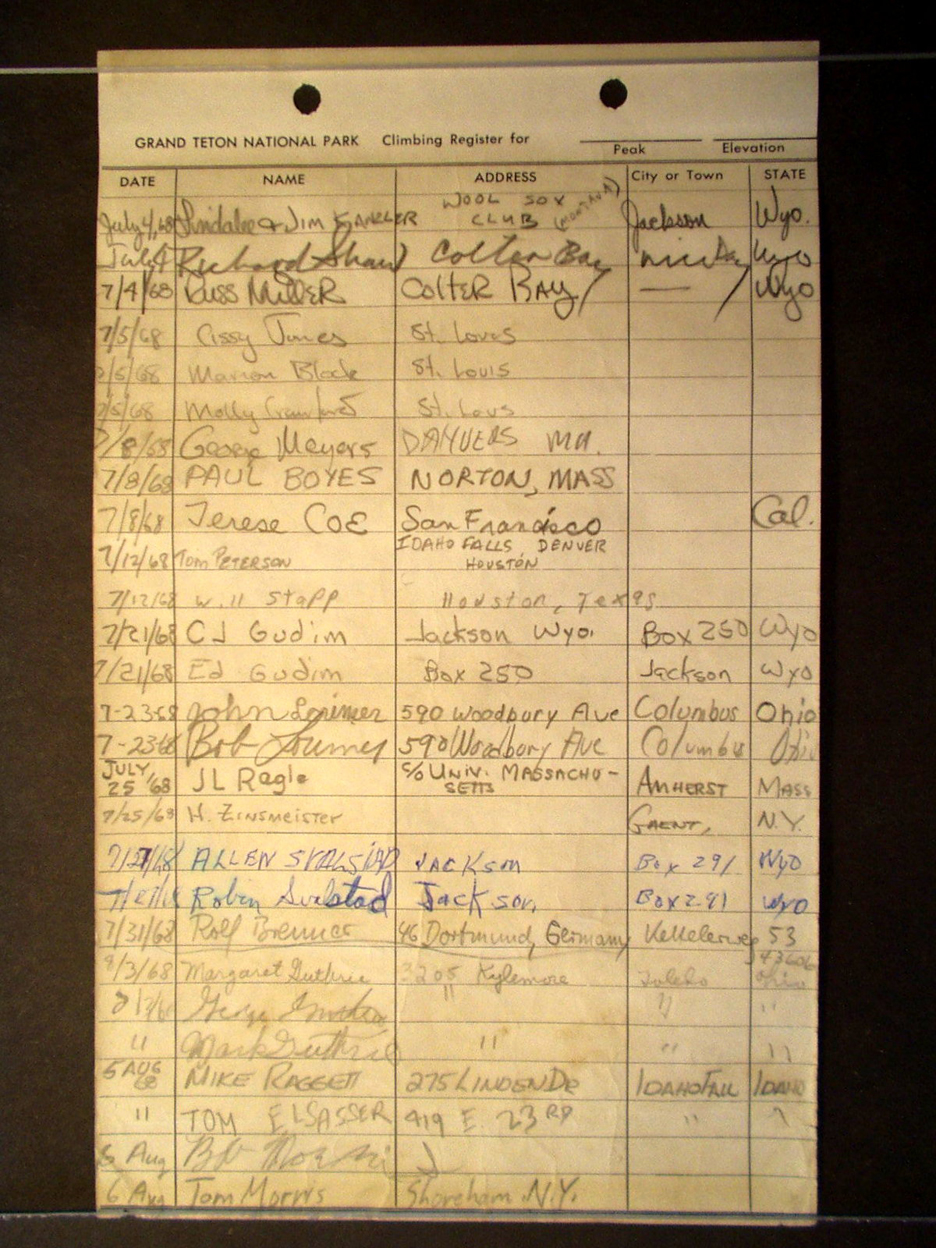 GRAND TETON NATIONAL PARK Climbing Register for
Peak Elevation
DATE NAME ADDRESS City or Town STATE
July 4, 68 & JIM WOOL SOX CLUB (MONTANA) Jackson Wyo.
July 4 Richard Shaw Colter Bay Wyo
7/4/68 RUSS MILLER COLTER BAY — Wyo
7/5/68 Cissy Jones St. Louis
7/5/68 Marion Block St. Louis
7/5/68 Molly Crawford St. Lous
7/8/68 George Meyers DANVERS MA.
7/8/68 PAUL BOYES NORTON, MASS
7/8/68 Terese COE San Francisco Cal.
7/12/68 TOM PETERSON IDAHO FALLS, DENVER HOUSTON
7/12/68 Will Stapp Houston, Texas
7/21/68 CJ Gudim Jackson Wyo. Box 250 Wyo
7/21/68 Ed Gudim Box 250 Jackson Wyo
7-23-68 John Lorimer 590 Woodbury Ave Columbus Ohio
7-23-68 Bob 590 Woodbury Ave Columbus Ohio
JULY 25 '68 JL Ragle c/o UNIV. MASSACHU-SETTS AMHERST MASS
7/25/68 H. ZINSMEISTER GHENT, N.Y.
7/27/68 ALLEN JACKSON Box 291 Wyo
Robin Jackson Box 291 Wyo
7/31/68 Rolf Brenner 46 Dortmund, Germany 53
8/3/68 Margaret Guthrie 3205 Kylemore Toledo Ohio 43606
George Guthrie " " "
" Mark Guthrie " " "
5 AUG 68 MIKE RAGGETT 275 LINDEN DR IDAHO FALL IDAHO
" TOM ELSASSER 419 E. 23RD " "
6 Aug Bob
6 Aug Tom Morris Shoreham. N.Y.